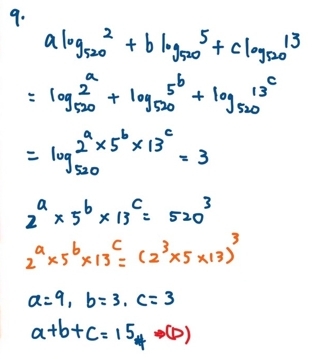 9.
a log₅₂₀ 2 + b log₅₂₀ 5 + c log₅₂₀ 13
= log₅₂₀ 2ᵃ + log₅₂₀ 5ᵇ + log₅₂₀ 13ᶜ
= log₅₂₀ 2ᵃ × 5ᵇ × 13ᶜ = 3
2ᵃ × 5ᵇ × 13ᶜ = 520³
2ᵃ × 5ᵇ × 13ᶜ = (2³ × 5 × 13)³
a=9, b=3. c=3
a+b+c=15# ⇒(D)